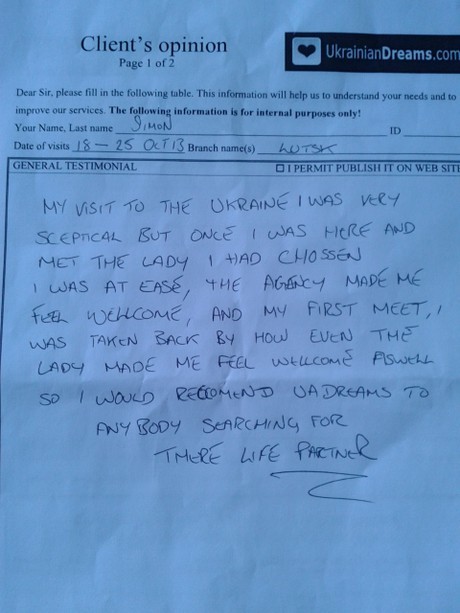 Client's opinion
UkrainianDreams.com
Page 1 of 2
Dear Sir, please fill in the following table. This information will help us to understand your needs and to
improve our services. The following information is for internal purposes only!
Your Name, Last name SIMON ID
Date of visits 18 - 25 OCT 13 Branch name(s) LUTSK
GENERAL TESTIMONIAL I PERMIT PUBLISH IT ON WEB SITE
MY VISIT TO THE UKRAINE I WAS VERY
SCEPTICAL BUT ONCE I WAS HERE AND
MET THE LADY I HAD CHOSSEN
I WAS AT EASE, THE AGENCY MADE ME
FEEL WELLCOME, AND MY FIRST MEET, I
WAS TAKEN BACK BY HOW EVEN THE
LADY MADE ME FEEL WELLCOME ASWELL
SO I WOULD RECCOMEND UADREAMS TO
ANYBODY SEARCHING FOR
THERE LIFE PARTNER